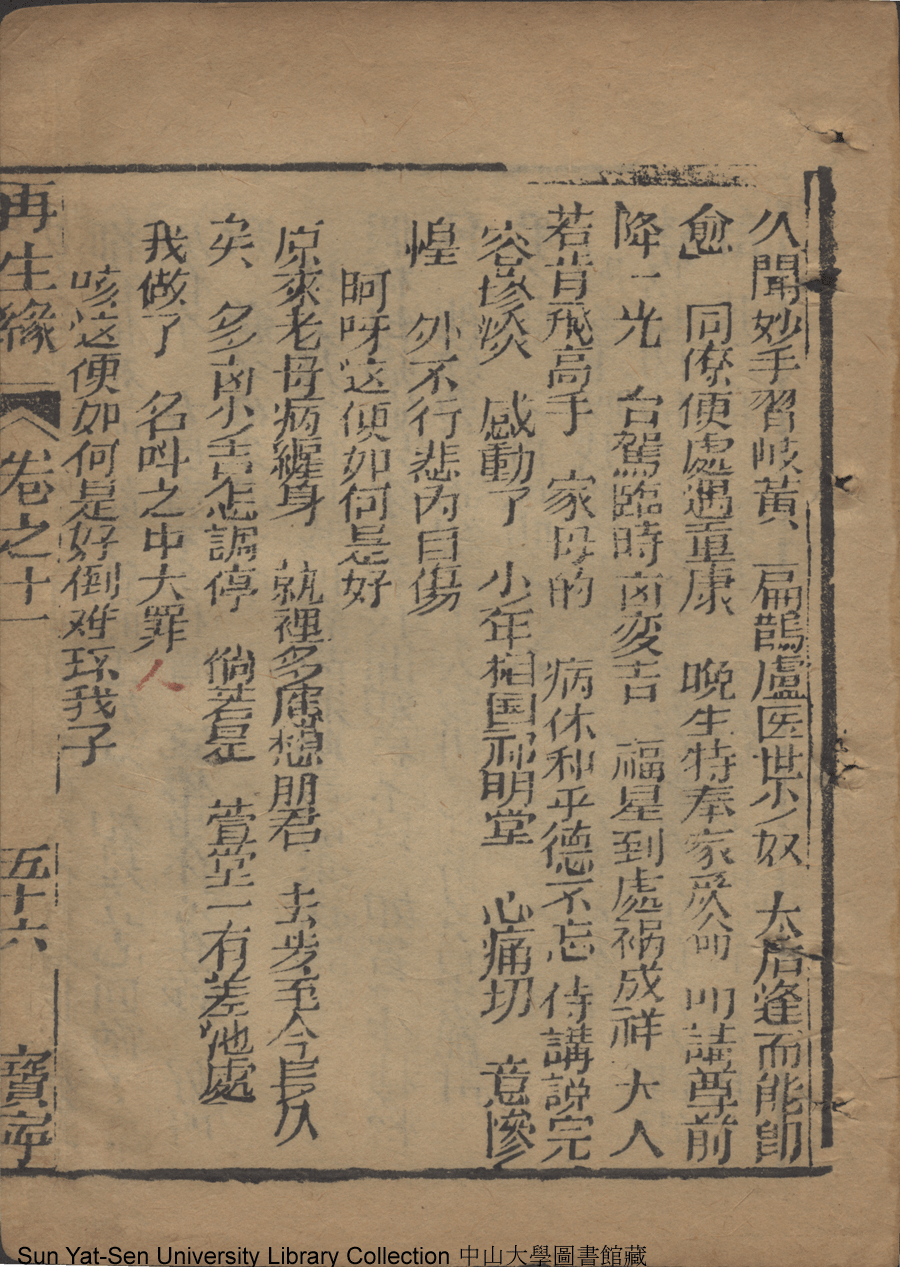 久聞妙手習岐黃 扁鵲盧医世少奴 太后逢而能即
愈 同僚便處遇重康 晚生特奉家爺命 叩請尊前
降一光 台駕臨時凶变吉 福星到處祸成祥 大人
若肯飛高手 家母的 病休和乎德不忘 侍講說完
容惨淡 感動了 少年相国郦明堂 心痛切 意慘
惶 外不行悲内自傷
呵呀这便如何是好
原來老母病纏身 就裡多應想朋君 去步至今長久
矣 多凶少吉怎調停 倘若是 萱堂一有差池處
我做了 名呌之中大罪人
咳这便如何是好倒难坏我子
再生緣 卷之十一 五十六 寶寧
Sun Yat-Sen University Library Collection 中山大學圖書館藏